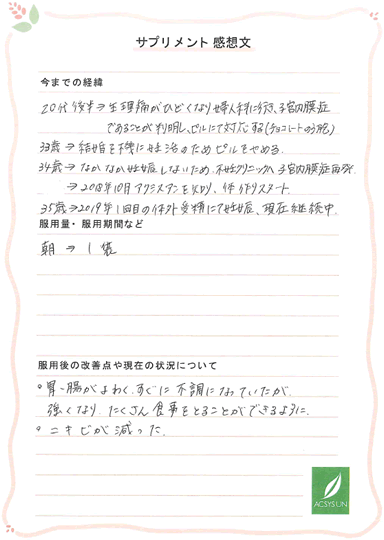 サプリメント 感想文
今までの経緯
20代後半→生理痛がひどくなり婦人科に行き、子宮内膜症
であることが判明し、ピルにて対応する(チョコレートのう胞)
33歳→結婚を機に妊活のためピルをやめる。
34歳→なかなか妊娠しないため、不妊クリニックへ、子宮内膜症再発。
→2018年10月アクシスアンを知り、体作りスタート
35歳→2019年1回目の体外受精にて妊娠、現在継続中。
服用量・服用期間など
朝→1袋
服用後の改善点や現在の状況について
○胃・腸がよわく、すぐに不調になっていたが
強くなり、たくさん食事をとることができるように。
○ニキビが減った。
ACSYSUN